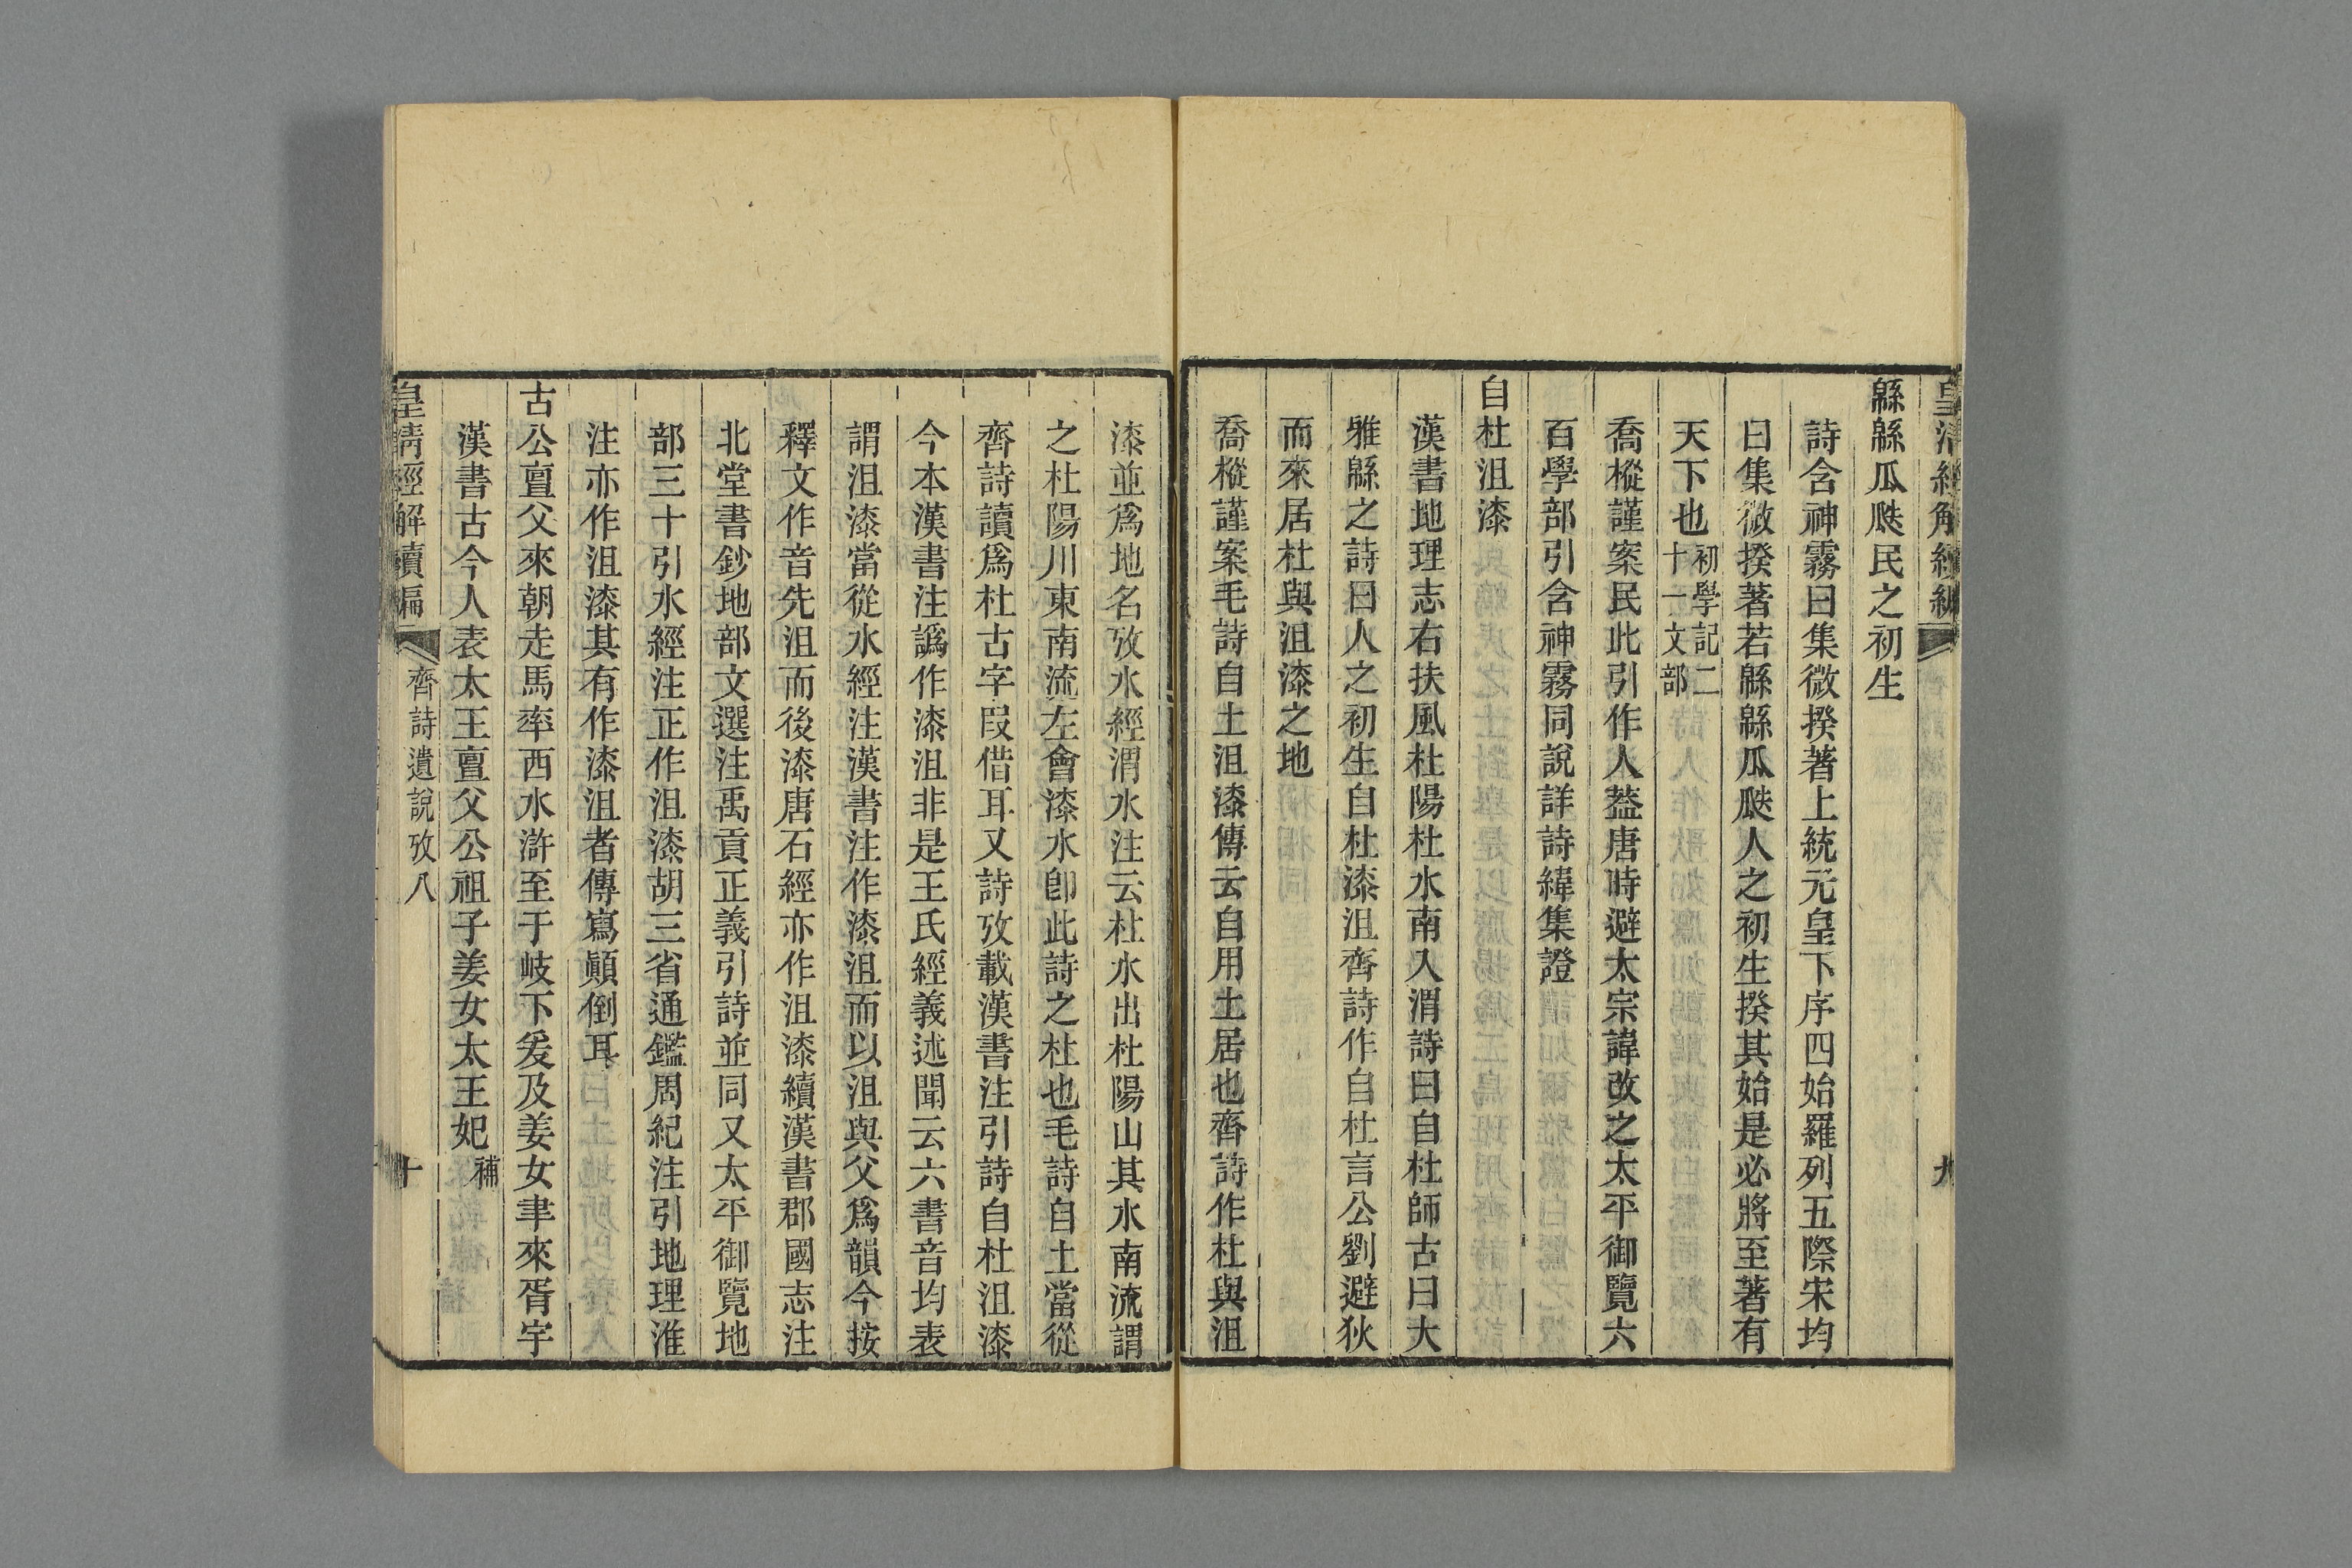 緜緜瓜瓞民之初生
詩含神霧曰集微揆著上統元皇下序四始羅列五際宋均
曰集微揆著若緜緜瓜瓞人之初生揆其始是必將至著有
天下也初學記二十一文部
喬樅謹案民此引作人葢唐時避太宗諱改之太平御覽六
百學部引含神霧同說詳詩緯集證
自杜沮漆
漢書地理志右扶風杜陽杜水南入渭詩曰自杜師古曰大
雅緜之詩曰人之初生自杜漆沮齊詩作自杜言公劉避狄
而來居杜與沮漆之地
喬樅謹案毛詩自土沮漆傳云自用土居也齊詩作杜與沮
漆並爲地名攷水經渭水注云杜水出杜陽山其水南流謂
之杜陽川東南流左會漆水卽此詩之杜也毛詩自土當從
齊詩讀爲杜古字叚借耳又詩攷載漢書注引詩自杜沮漆
今本漢書注譌作漆沮非是王氏經義述聞云六書音均表
謂沮漆當從水經注漢書注作漆沮而以沮與父爲韻今按
釋文作音先沮而後漆唐石經亦作沮漆續漢書郡國志注
北堂書鈔地部文選注禹貢正義引詩並同又太平御覽地
部三十引水經注正作沮漆胡三省通鑑周紀注引地理淮
注亦作沮漆其有作漆沮者傳寫顚倒耳
古公亶父來朝走馬率西水滸至于岐下爰及姜女聿來胥宇
漢書古今人表太王亶父公祖子姜女太王妃補
皇清經解續編 齊詩遺說攷八 十